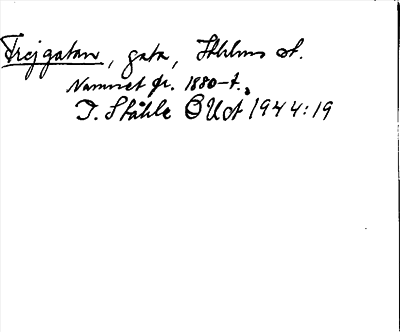 Frejgatan, gata, Sthlms st.
Namnet fr. 1880-t.,
I. Ståhle OUot 1944:19